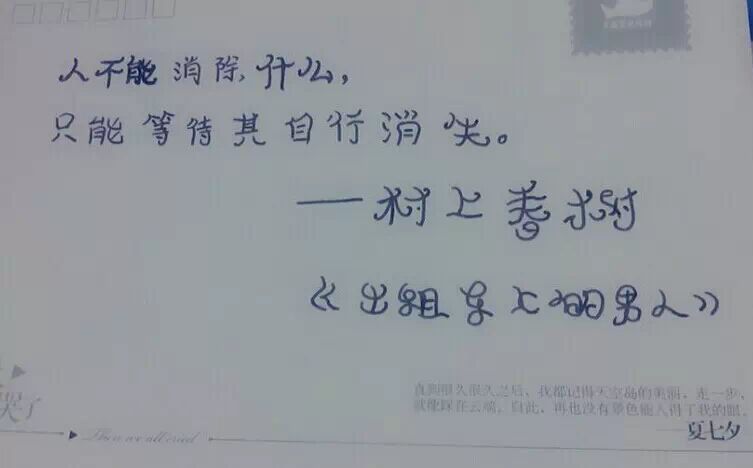 人不能消除什么,
只能等待其自行消失。
——村上春树
《出租车上的男人》
直到很久很久之后，我都记得天空岛的美丽，走一步，
就像踩在云端。自此，再也没有景色能入得了我的眼。
——夏七夕
哭了
Then we all cried